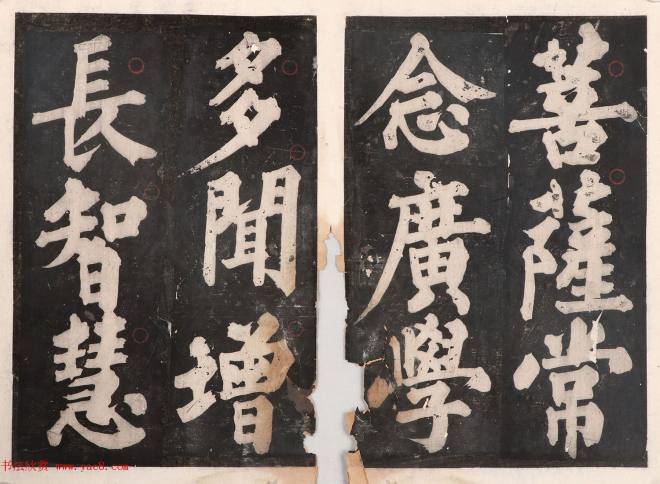 菩薩常
念廣學
多聞增
長智慧
书法欣赏 www.yac8.com